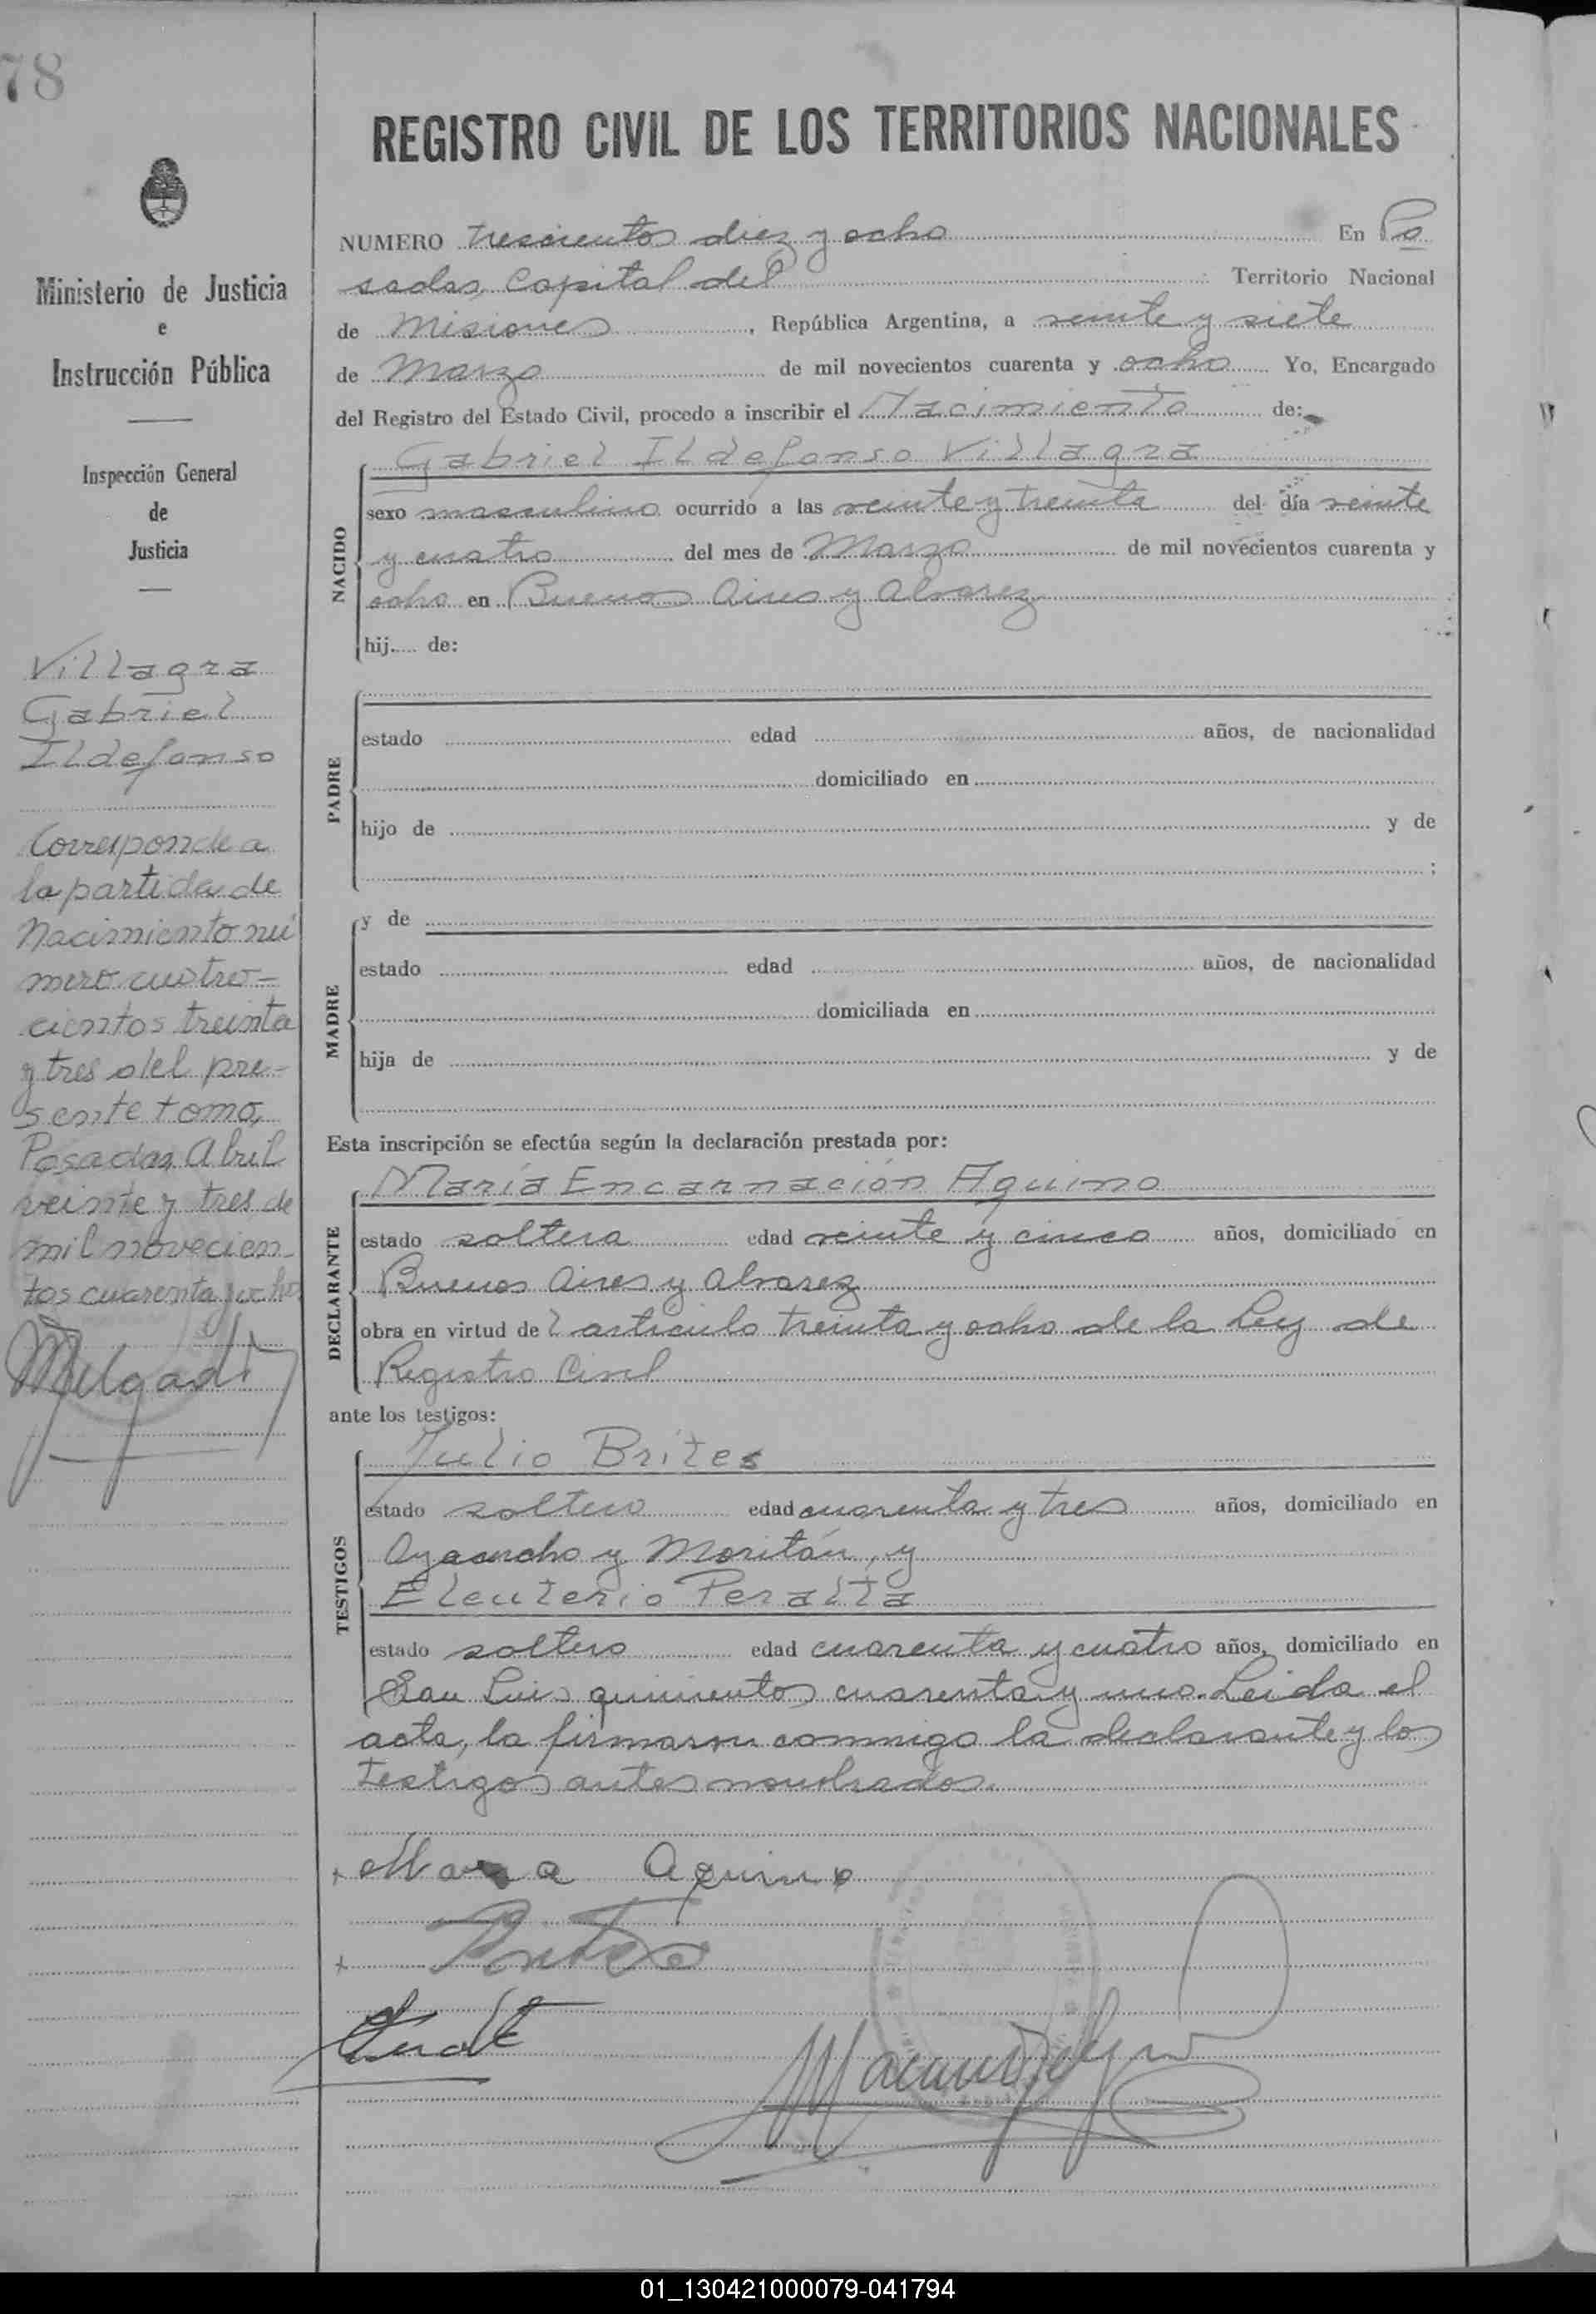 78
Ministerio de Justicia
e
Instrucción Pública
Inspección General
de
Justicia
Villagra
Gabriel
Ildefonso
Corresponde a
la partida de
Nacimiento nú
mero cuatro-
cientos treinta
y tres del pre-
sente tomo,
Posadas, Abril
veinte y tres de
mil novecien
tos cuarenta y ocho
REGISTRO CIVIL DE LOS TERRITORIOS NACIONALES
NUMERO trescientos diez y ocho En Po
sadas, Capital del Territorio Nacional
de Misiones, República Argentina, a veinte y siete
de Marzo de mil novecientos cuarenta y ocho Yo, Encargado
del Registro del Estado Civil, procedo a inscribir el Nacimiento de:
Gabriel Ildefonso Villagra
NACIDO
sexo masculino ocurrido a las veinte y treinta del día veinte
y cuatro del mes de Marzo de mil novecientos cuarenta y
ocho en Buenos Aires y Alvarez
hij.... de:
PADRE
estado edad años, de nacionalidad
domiciliado en
hijo de y de
;
MADRE
y de
estado edad años, de nacionalidad
domiciliada en
hija de y de
Esta inscripción se efectúa según la declaración prestada por:
DECLARANTE
María Encarnación Aquino
estado soltera edad veinte y cinco años, domiciliado en
Buenos Aires y Alvarez
obra en virtud del artículo treinta y ocho de la Ley de
Registro Civil
ante los testigos:
TESTIGOS
Julio Brites
estado soltero edad cuarenta y tres años, domiciliado en
Ayacucho y Moritán, y
Eleuterio Peralta
estado soltero edad cuarenta y cuatro años, domiciliado en
San Luis quinientos cuarenta y uno. Leida el
acta, la firmaron conmigo la declarante y los
testigos antes nombrados.
Maria Aquino
Brites
01_130421000079-041794